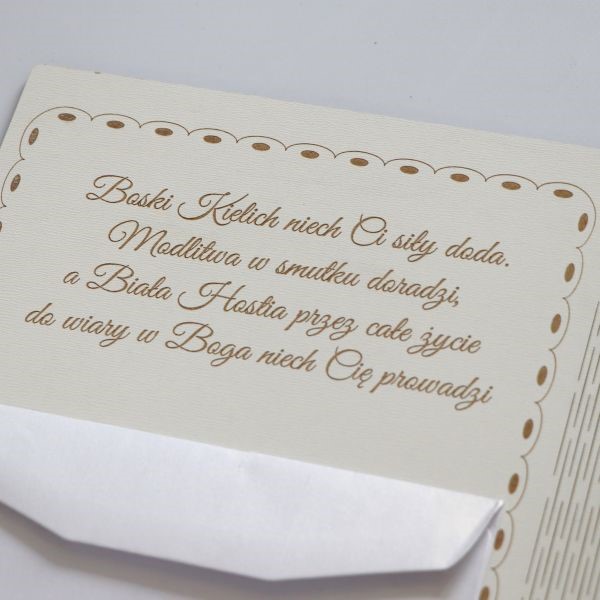 Boski Kielich niech Ci siły doda.
Modlitwa w smutku doradzi,
a Biała Hostia przez całe życie
do wiary w Boga niech Cię prowadzi